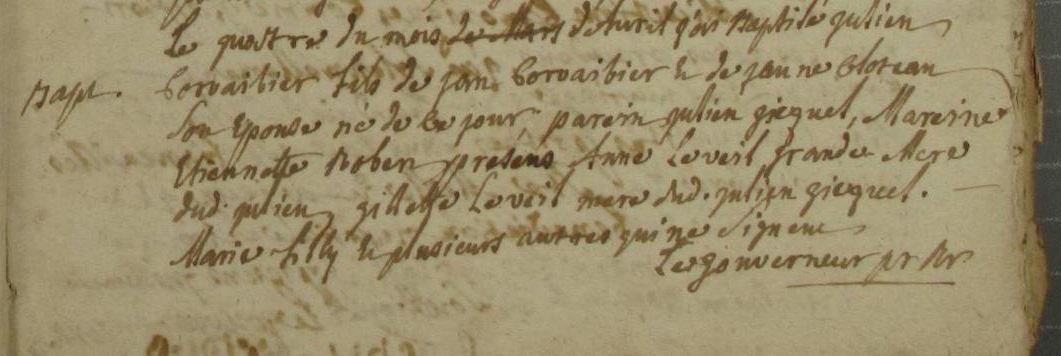 Le quattre du mois de Mars d'Avril j'ai Baptisé julien
Bapt. Corvaibier fils de jan Corvaibier & de janne Cloteau
son Epouse né de ce jour, parein julien gicquel, Mareine
Etiennette Rober presens Anne Leveil grande-Mere
dud. julien, gillette Leveil mere dud. julien gicquel.
Marie Filly & plusieurs autres qui ne signent
Le gouverneur pr Rr